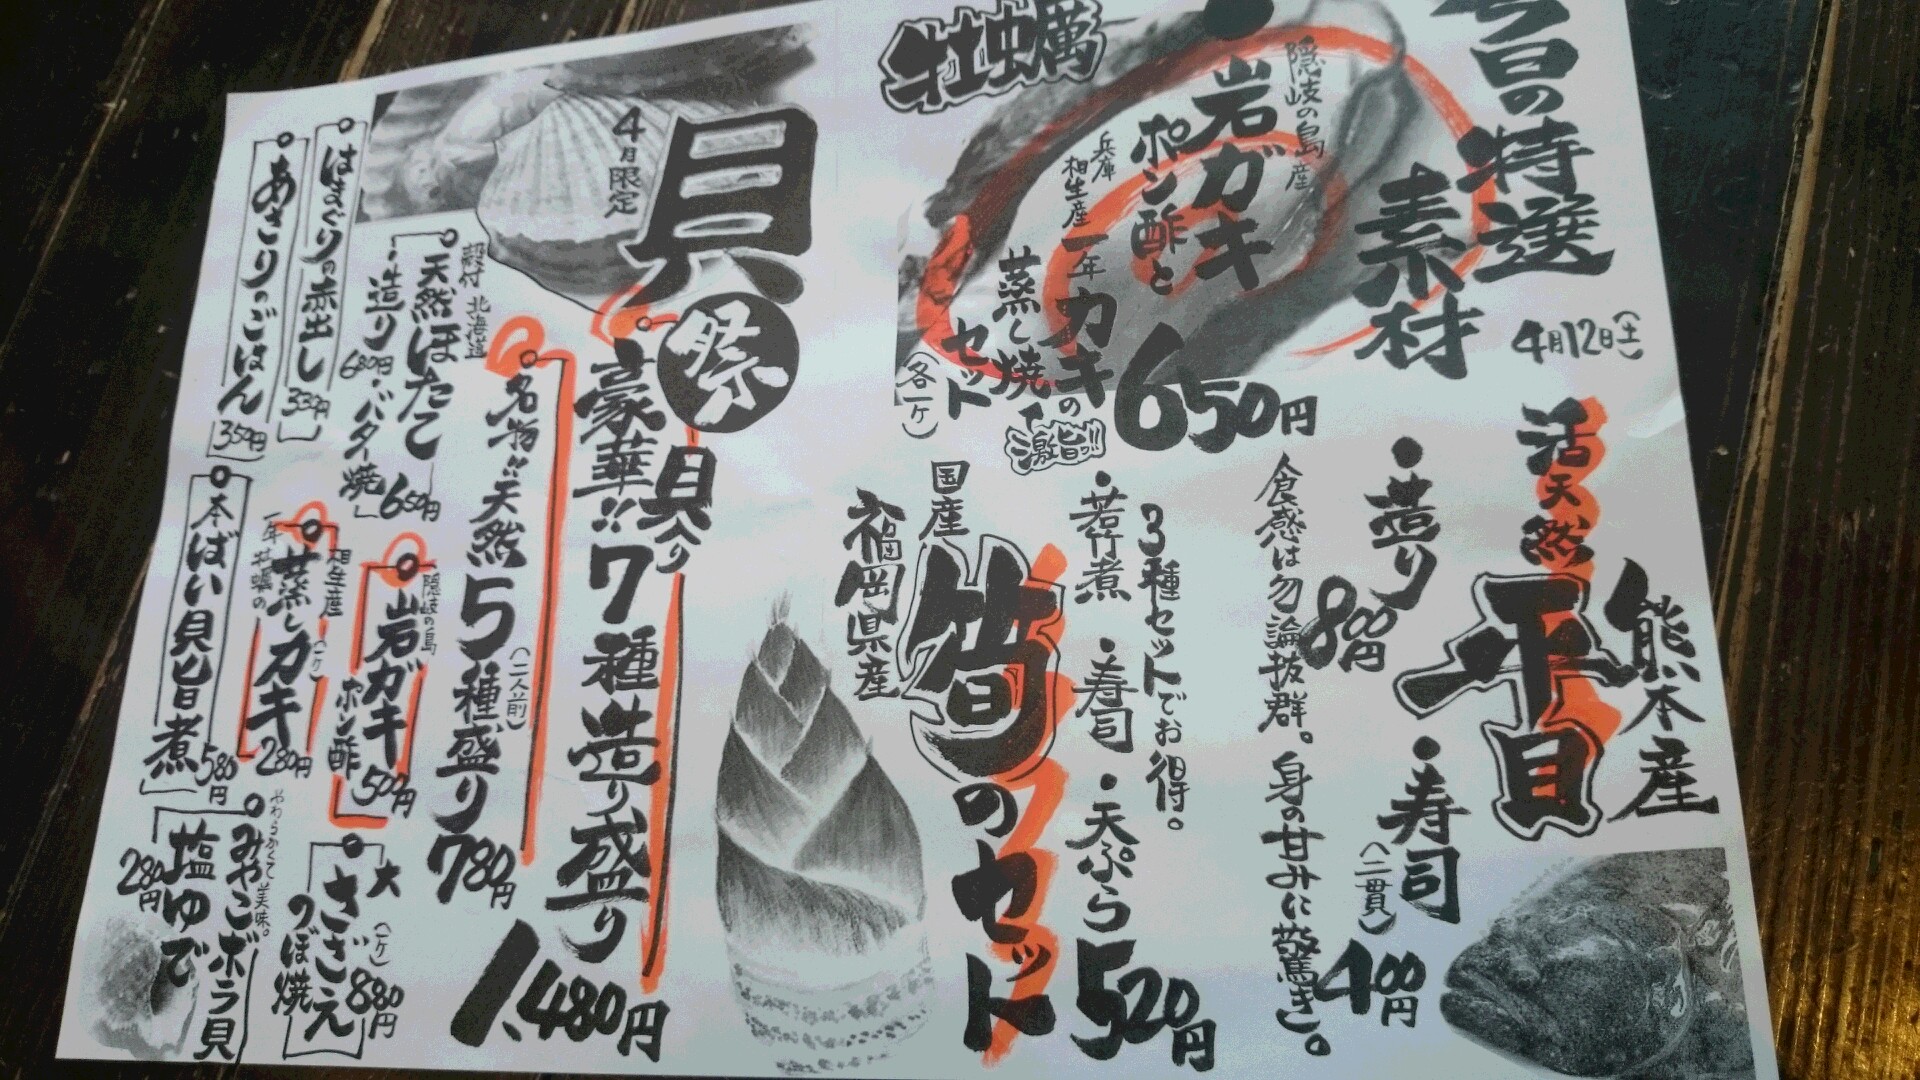 今日の特選
素材
4月12日(土)
牡蠣
隠岐の島産
・岩ガキ
ポン酢と
兵庫
相生産
一年カキの
蒸し焼
セット
(各一ケ)
激旨!!
650円
熊本産
活天然
平目
・造り
800円
・寿司
(二貫)
400円
食感は勿論抜群。身の甘みに驚き。
国産
筍のセット
福岡県産
3種セットでお得。
・若竹煮
・寿司
・天ぷら
520円
貝祭
4月限定
貝入り
豪華!!7種造り盛り
1,480円
名物!!天然5種盛り
(二人前)
780円
殻付 北海道
天然ほたて
・造り
680円
・バター焼
650円
はまぐりの赤出し
330円
あさりのごはん
350円
隠岐の島
岩ガキ
ポン酢
500円
相生産
(一ケ)
蒸しカキ
一年牡蠣の
280円
本ばい貝旨煮
580円
大
さざえ
(一ケ)
つぼ焼
880円
やわらかくて美味。
みやこボラ貝
塩ゆで
280円